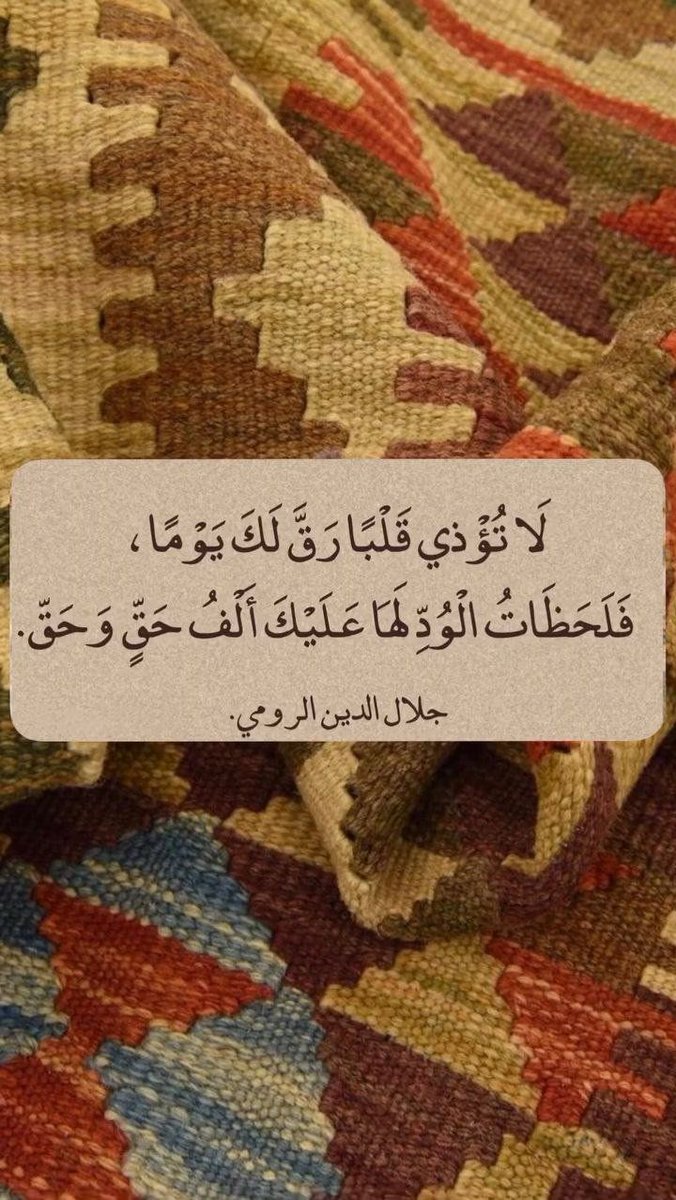 لَا تُؤْذي قَلْبًا رَقَّ لَكَ يَوْمًا،
فَلَحَظَاتُ الْوُدِّ لَهَا عَلَيْكَ أَلْفُ حَقٍّ وَحَقّ.
جلال الدين الرومي.